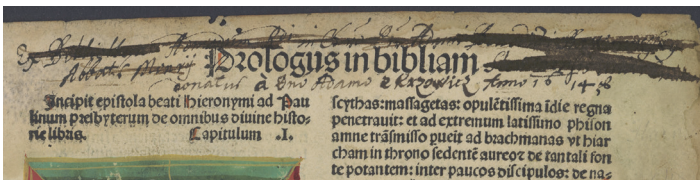 Prologus in bibliam
donatus à Dno Adamo Anno
Incipit epistola beati Hieronymi ad Pau
linum presbyterum de omnibus diuine histo-
rie libris. Capitulum .I.
scythas: massagetas: opulētissima īdie regna
penetrauit: et ad extremum latissimo phison
amne trāsmisso ꝑueit ad brachmanas vt hiar
cham in throno sedentē aureo: ⁊ de tantali fon
te potantem: inter paucos discipulos: de na-